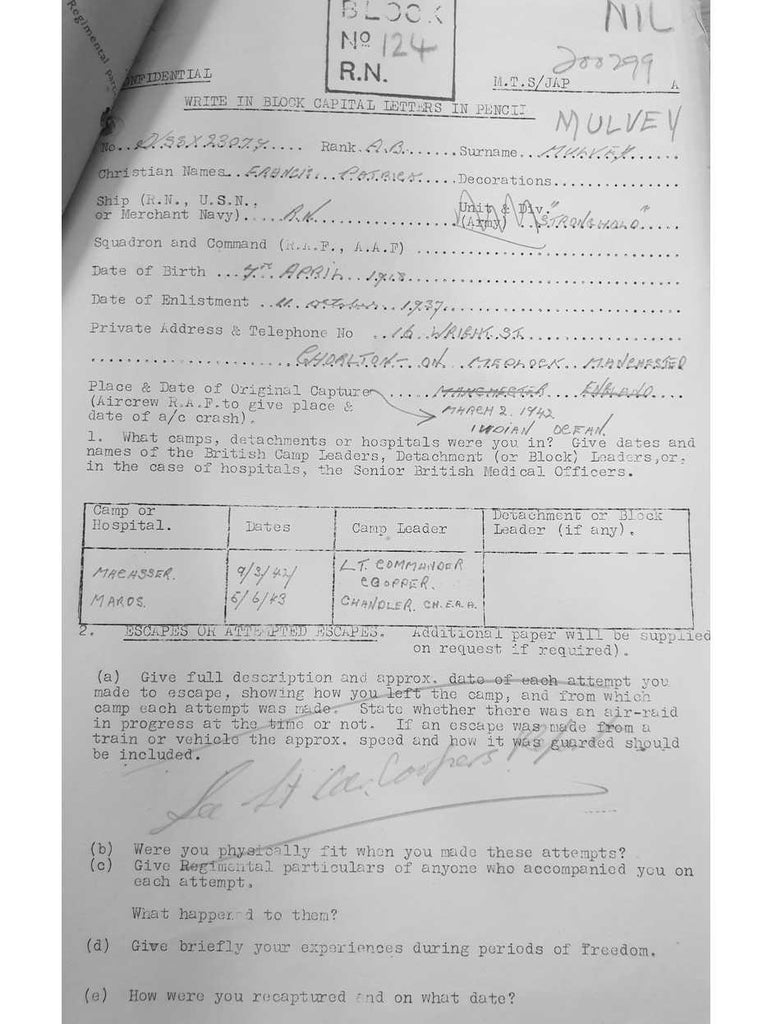 Regimental part
BLOCK
Nº 124
R.N.
NIL
200299
CONFIDENTIAL
M.T.S/JAP A
WRITE IN BLOCK CAPITAL LETTERS IN PENCIL
MULVEY
No. D/SSX23077 .... Rank. A.B. .....Surname.. MULVEY......
Christian Names.. FRANCIS. PATRICK....Decorations............
Ship (R.N., U.S.N., Unit & Div.
or Merchant Navy).... R.N. (Army) "STRONGHOLD".....
Squadron and Command (R.A.F., A.A.F) ..........................
Date of Birth ... 7TH APRIL 1918..........................
Date of Enlistment .. 11 October 1937..........................
Private Address & Telephone No .. 16 WRIGHT ST...............
................ CHORLTON- ON MEDLOCK MANCHESTER
Place & Date of Original Capture ..... MANCHESTER ENGLAND....
(Aircrew R.A.F. to give place & MARCH 2. 1942
date of a/c crash). INDIAN OCEAN.
1. What camps, detachments or hospitals were you in? Give dates and
names of the British Camp Leaders, Detachment (or Block) Leaders, or,
in the case of hospitals, the Senior British Medical Officers.
Camp or Hospital. Dates Camp Leader Detachment or Block Leader (if any).
MACASSER. 9/3/42/ LT. COMMANDER COOPPER.
MAROS. 5/6/43 CHANDLER. CH.E.R.A.
2. ESCAPES OR ATTEMPTED ESCAPES. Additional paper will be supplied
on request if required).
(a) Give full description and approx. date of each attempt you
made to escape, showing how you left the camp, and from which
camp each attempt was made. State whether there was an air-raid
in progress at the time or not. If an escape was made from a
train or vehicle the approx. speed and how it was guarded should
be included.
See Lt Cdr. Coopers Report
(b) Were you physically fit when you made these attempts?
(c) Give Regimental particulars of anyone who accompanied you on
each attempt.
What happened to them?
(d) Give briefly your experiences during periods of freedom.
(e) How were you recaptured and on what date?